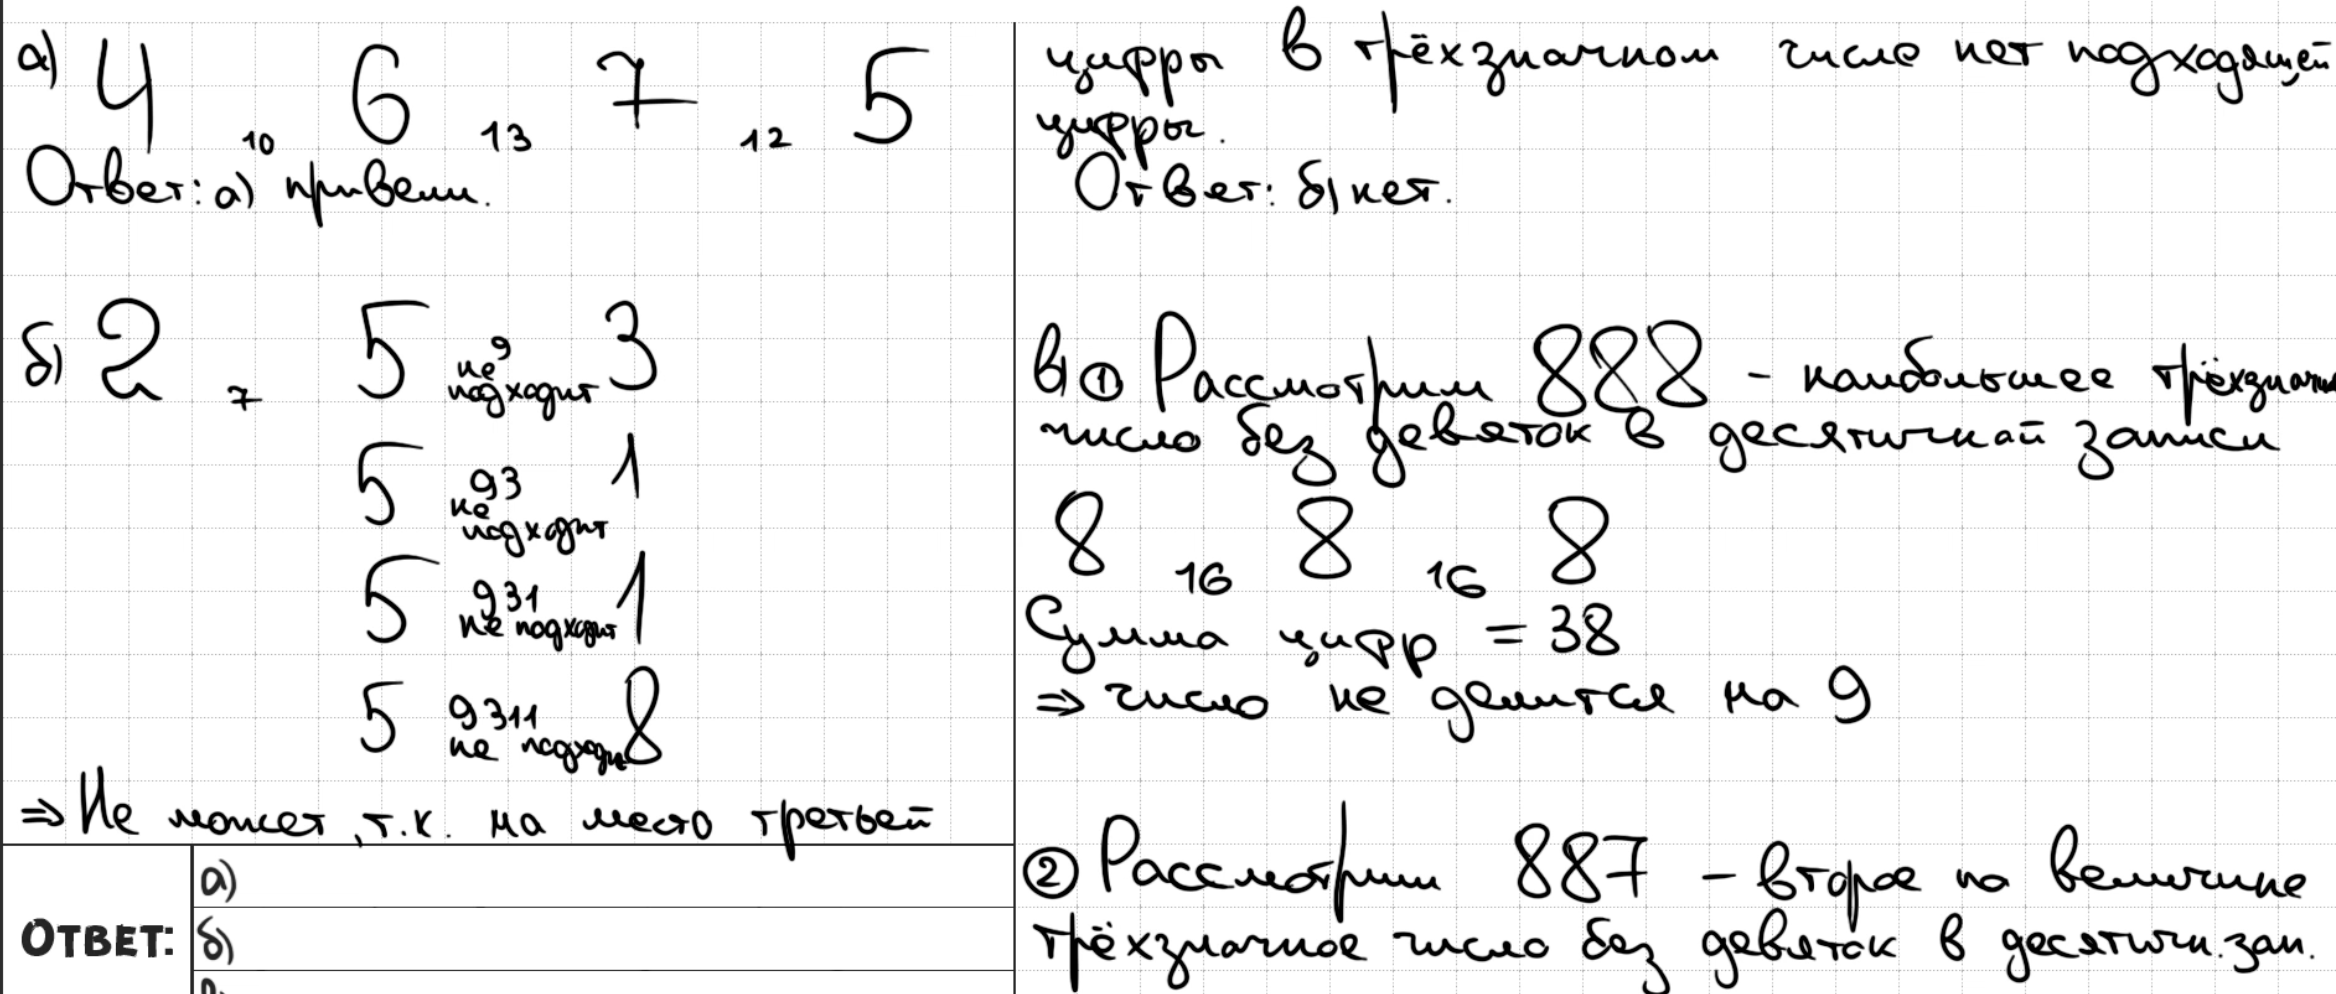 а) 4 10 6 13 7 12 5
Ответ: а) привели.
б) 2 7 5 9 3
не
подходит
5 93 1
не
подходит
5 931 1
не подходит
5 9311 8
не подходит
⇒ Не может, т.к. на место третьей
ОТВЕТ:
а)
б)
цифры в трёхзначном числе нет подходящей
цифры.
Ответ: б) нет.
в) ① Рассмотрим 888 - наибольшее
число без девяток в десятичной записи
8 16 8 16 8
Сумма цифр = 38
⇒ число не делится на 9
② Рассмотрим 887 - второе по величине
трёхзначное число без девяток в десятичн. зап.